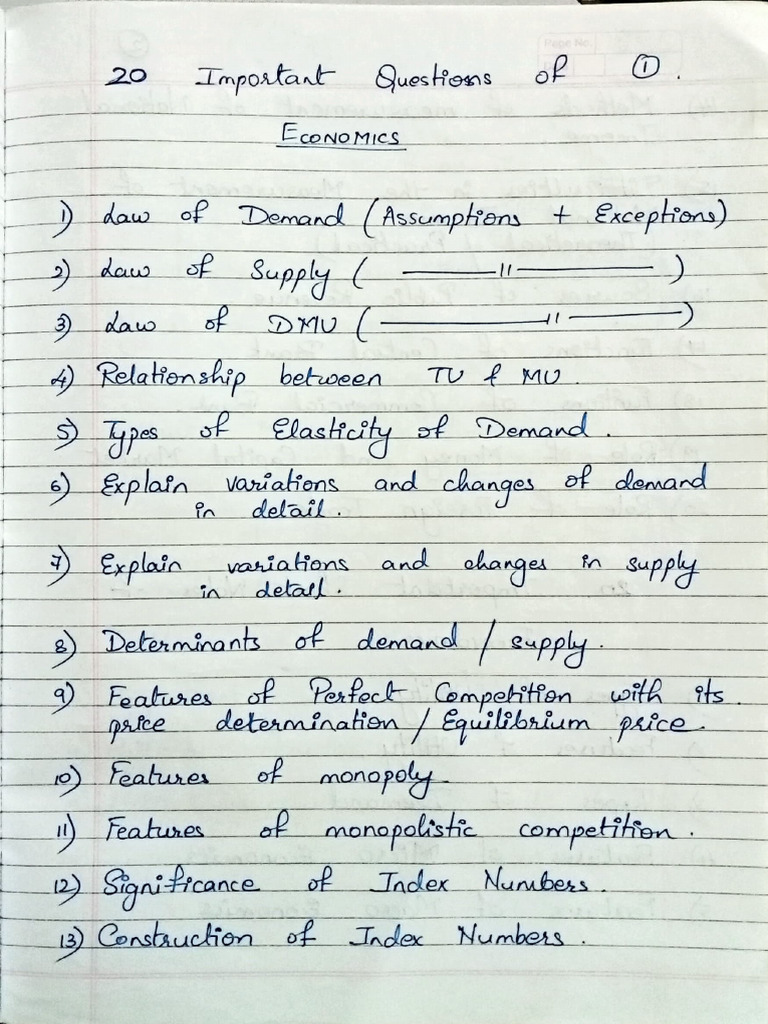 20 Important Questions of ①.
ECONOMICS
1) Law of Demand (Assumptions + Exceptions)
2) Law of Supply ( ——— 11 ——— )
3) Law of DMU ( ——— 11 ——— )
4) Relationship between TU & MU.
5) Types of Elasticity of Demand.
6) Explain variations and changes of demand
in detail.
7) Explain variations and changes in supply
in detail.
8) Determinants of demand / supply.
9) Features of Perfect Competition with its
price determination / Equilibrium price.
10) Features of monopoly.
11) Features of monopolistic competition.
12) Significance of Index Numbers.
13) Construction of Index Numbers.